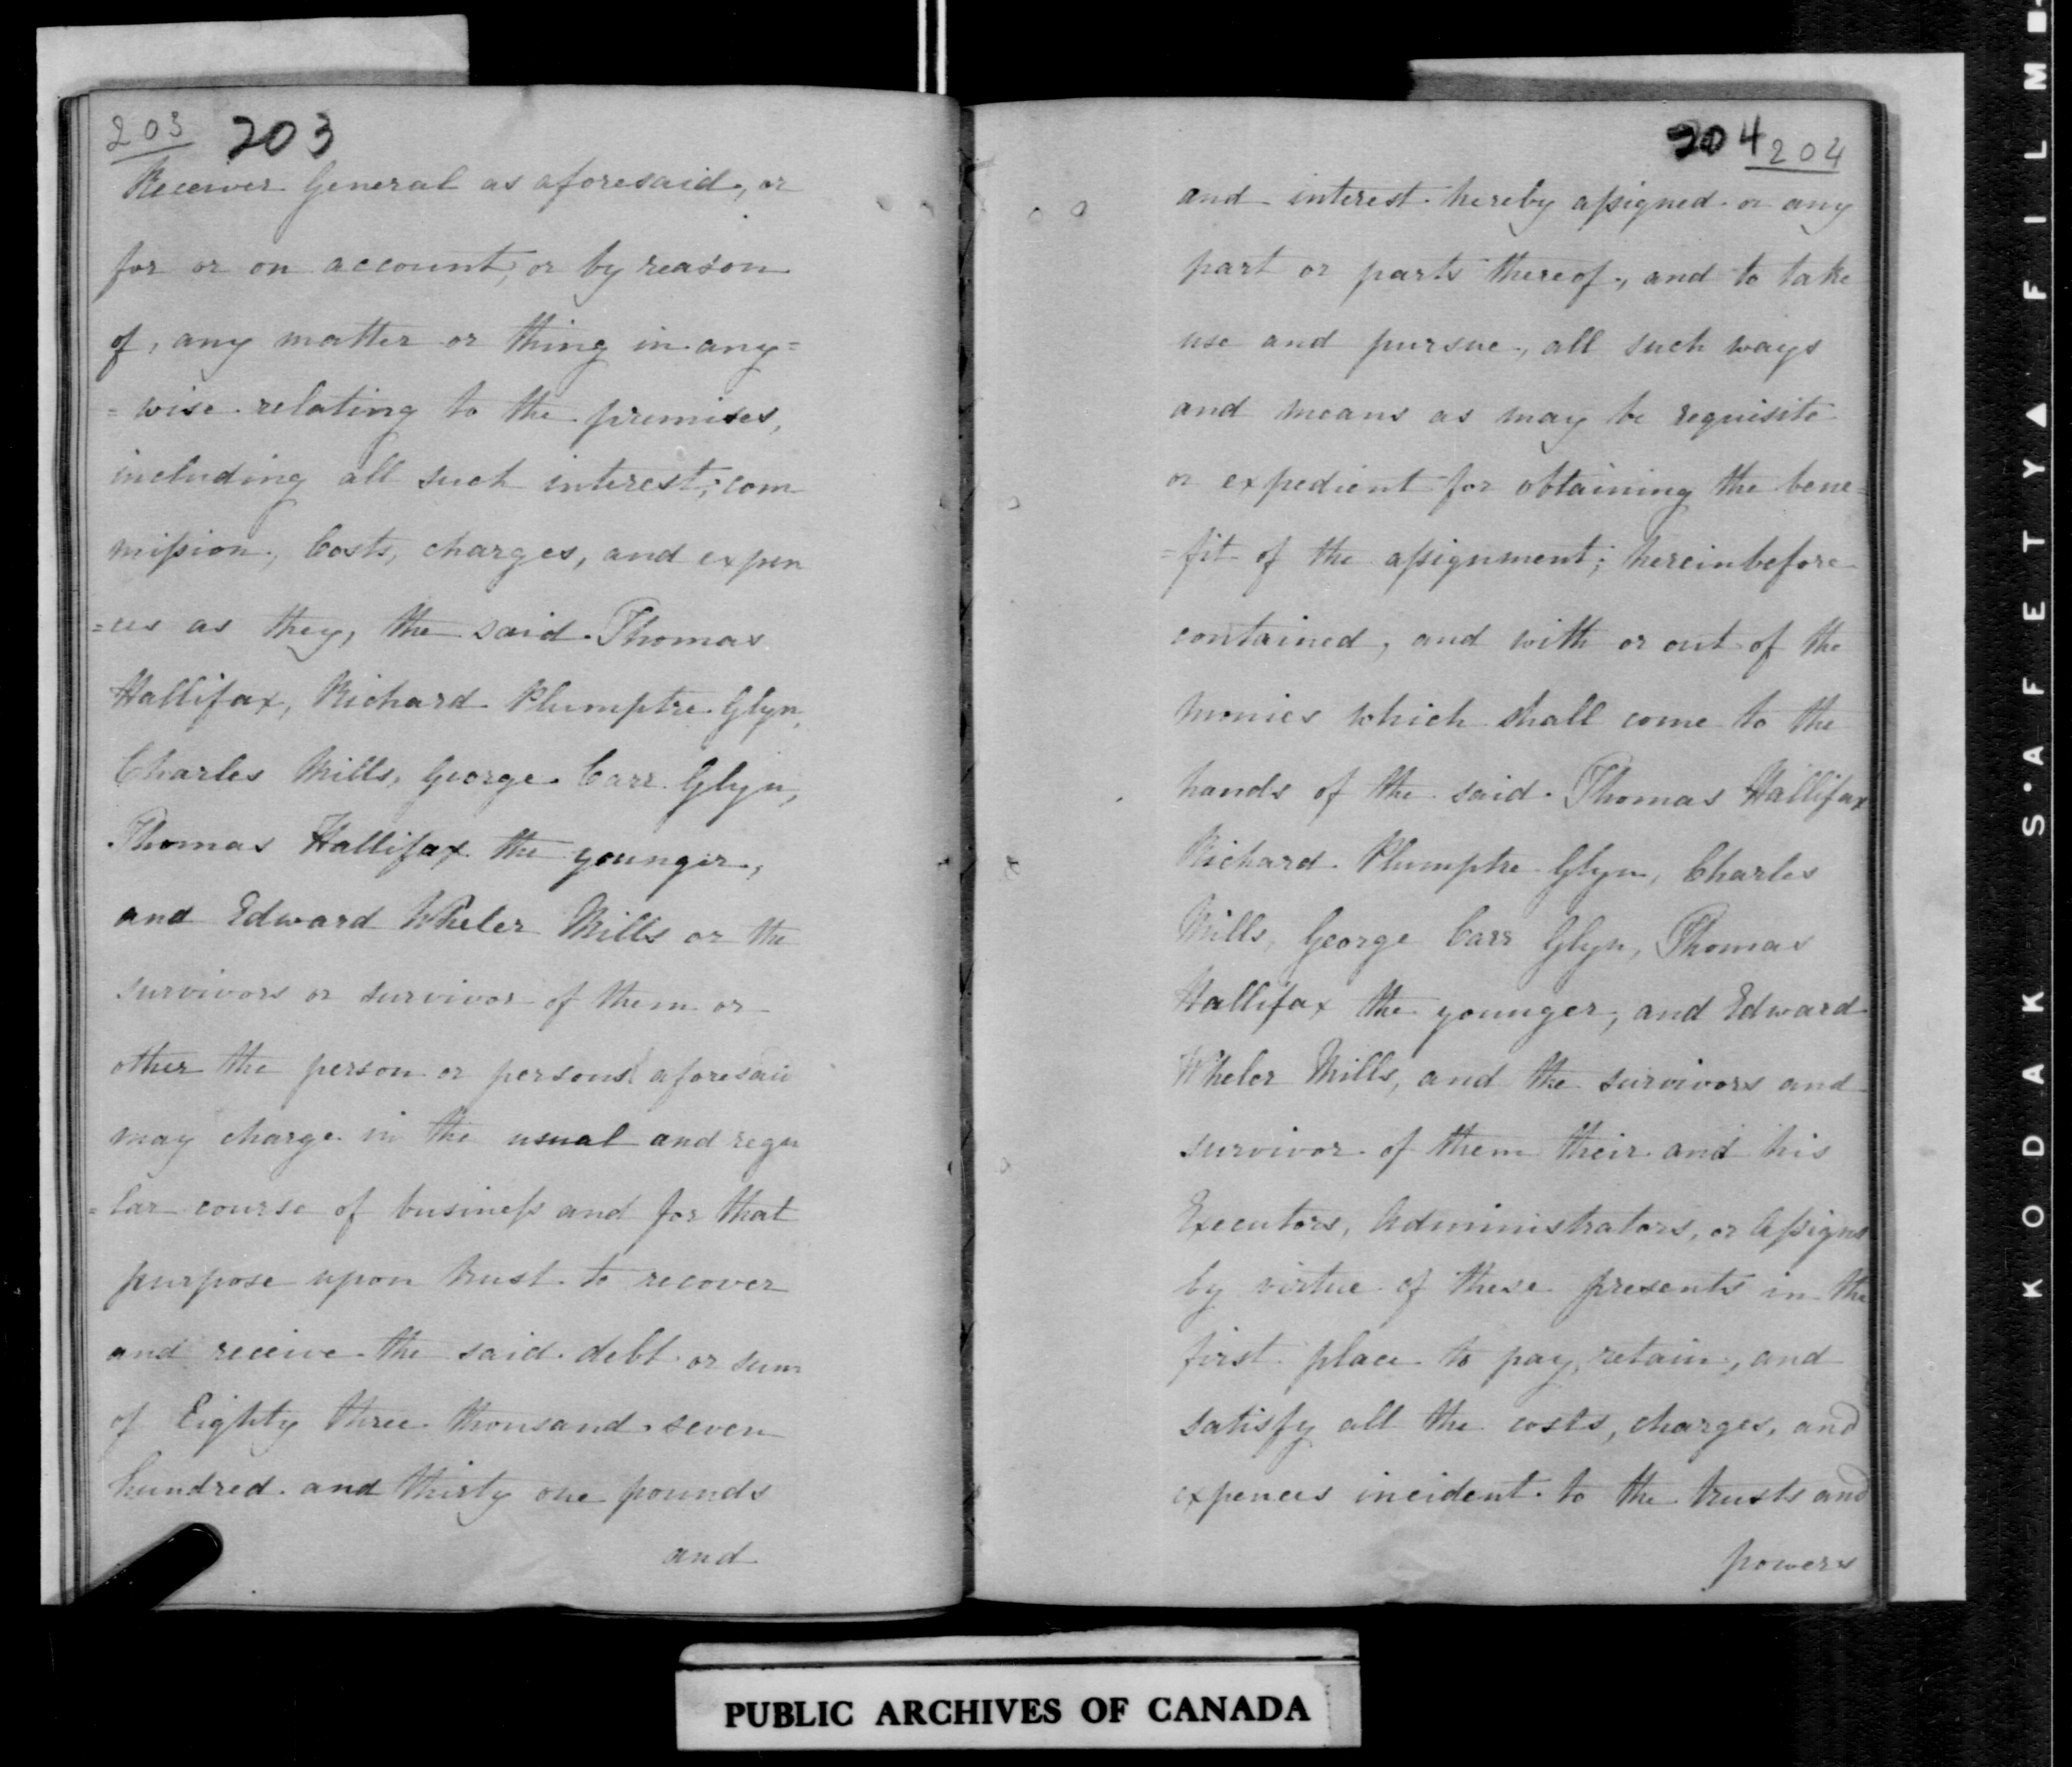 203 203
Receiver General as aforesaid, or
for or on account, or by reason
of, any matter or thing in any=
=wise relating to the premises,
including all such interest, com
mission, Costs, charges, and expen
=ces as they, the said Thomas
Hallifax, Richard Plumptre Glyn,
Charles Mills, George Carr Glyn,
Thomas Hallifax the younger,
and Edward Wheler Mills or the
survivors or survivor of them or
other the person or persons aforesaid
may charge in the usual and regu
=lar course of business and for that
purpose upon trust to recover
and receive the said debt or sum
of Eighty three thousand seven
hundred and thirty one pounds
and
204 204
and interest hereby assigned or any
part or parts thereof, and to take
use and pursue, all such ways
and means as may be requisite
or expedient for obtaining the bene=
=fit of the assignment, hereinbefore
contained, and with or out of the
monies which shall come to the
hands of the said Thomas Hallifax
Richard Plumptre Glyn, Charles
Mills, George Carr Glyn, Thomas
Hallifax the younger, and Edward
Wheler Mills, and the survivors and
survivor of them their and his
Executors, Administrators, or Assigns
by virtue of these presents in the
first place to pay, retain, and
satisfy all the costs, charges, and
expences incident to the trusts and
powers
PUBLIC ARCHIVES OF CANADA
KODAK S·AFETY▲FILM